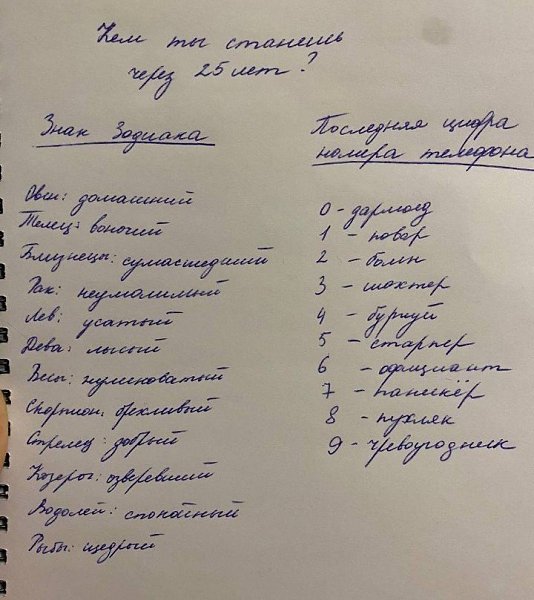 Кем ты станешь
через 25 лет?
Знак Зодиака
Овен: домашний
Телец: вонючий
Близнецы: сумасшедший
Рак: неумолимый
Лев: усатый
Дева: лысый
Весы: нумековатый
Скорпион: брехливый
Стрелец: добрый
Козерог: озверевший
Водолей: спокойный
Рыбы: щедрый
Последняя цифра
номера телефона
0 - дармоед
1 - повар
2 - бомж
3 - шахтер
4 - буржуй
5 - старпер
6 - официант
7 - паникёр
8 - пухляк
9 - чревоугодник